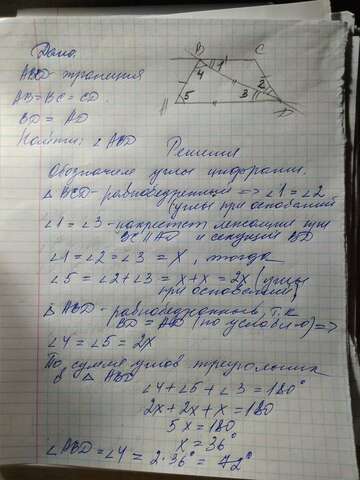 Дано:
ABCD - трапеция
AB = BC = CD
BD = AD
Найти: ∠ABD
B
C
1
4
2
3
5
D
Решения
Обозначем углы цифрами.
△ BCD - равнобедренный => ∠1 = ∠2
(углы при основании)
∠1 = ∠3 - накрест лежащие при
BC || AD и секущей BD
∠1 = ∠2 = ∠3 = x, тогда
∠5 = ∠2 + ∠3 = x + x = 2x (углы
при основании)
△ ABD - равнобедренный, т.к
BD = AD (по условию) =>
∠4 = ∠5 = 2x
По сумме углов треугольник
в △ ABD
∠4 + ∠5 + ∠3 = 180°
2x + 2x + x = 180
5x = 180
x = 36°
∠ABD = ∠4 = 2·36° = 72°